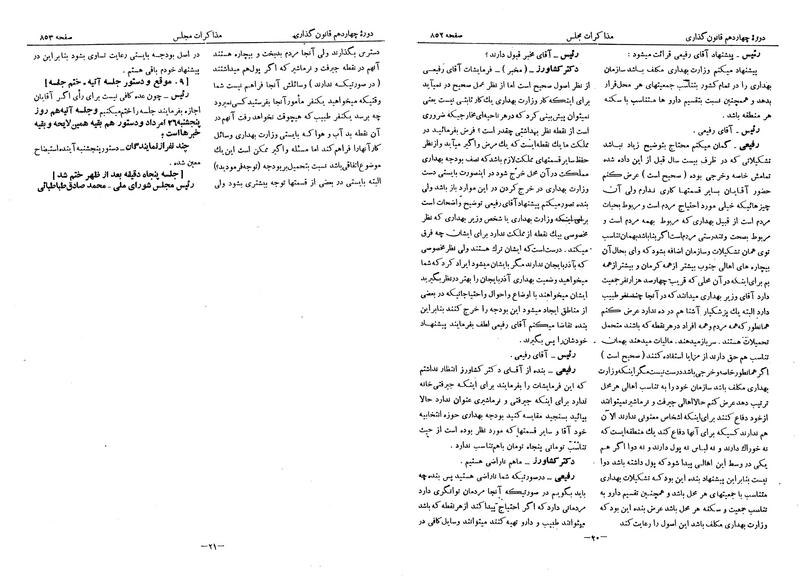 دورهٔ چهاردهم قانون گذاری
مذاکرات مجلس
صفحه ۸۵۲
رئیس - پیشنهاد آقای رفیعی قرائت میشود:
پیشنهاد میکنم وزارت بهداری مکلف باشد سازمان
بهداری را در تمام کشور بتناسب جمعیتهای هر محل قرار
بدهد و همچنین نسبت بتقسیم دارو ها متناسب با سکنه
هر منطقه باشد.
رئیس - آقای رفیعی.
رفیعی - گمان میکنم محتاج بتوضیح زیاد نباشد
تشکیلاتی که در ظرف بیست سال قبل از این داده شده
تمامش خاصه وخرجی بوده (صحیح است) عرض کنم
حضور آقایان بسایر قسمتها کاری ندارم ولی آن
چیزهائیکه خیلی مورد احتیاج مردم است و مربوط بحیات
مردم است از قبیل بهداری که مربوط بهمه مردم است و
مربوط بصحت وتندستی مردم است اگر بنا باشد بهمان تناسب
توی همان تشکیلات وسازمان اضافه بشود که وای بحال آن
بیچاره های اهالی جنوب بیشتر از همه کرمان و بیشتر از همه
بم برای اینکه در آن محلی که قریب چهارصد هزار نفر جمعیت
دارد آقای وزیر بهداری میدانند که در آنجا چند نفر طبیب
دارد البته یك پزشکیار آشنا هم در ده ندارد عرض کنم
همانطور که همه مردم وهمه افراد در هر نقطه که باشند متحمل
تحمیلات هستند. سرباز میدهند. مالیات میدهند بهمان
تناسب هم حق دارند از مزایا استفاده کنند (صحیح است)
اگر همانطور خاصه وخرجی باشد درست نیست مگر اینکه وزارت
بهداری مکلف باشد سازمان خود را به تناسب اهالی هر محل
ترتیب دهد عرض کنم حالا اهالی جیرفت و نرماشیر نمیتوانند
از خود دفاع کنند برای اینکه اشخاص معنونی ندارند الان
هم ندارند کسیکه برای آنها دفاع کند یك منطقه ایست که
نه خوراك دارند و نه لباس نه پول دارند و نه دوا اگر هم
یکی در وسط این اهالی پیدا شود که پول داشته باشد دوا
نیست بنابر این پیشنهاد بنده این بود که تشکیلات بهداری
متناسب با جمعیتهای هر محل باشد و همچنین تقسیم دارو به
تناسب جمعیت و سکنه هر محل باشد عرض بنده این بود که
وزارت بهداری مکلف باشد این اصول را رعایت کند
رئیس - آقای مخبر قبول دارند؟
دکتر کشاورز - (مخبر) - فرمایشات آقای رفیعی
از نظر اصول صحیح است اما از نظر عمل صحیح در نمیآید
برای اینکه کار وزارت بهداری یك کار ثابتی نیست یعنی
نمیتوان پیش بینی کرد که در هر ناحیه ای مخارجیکه ضروری
است از نقطه نظر بهداشتی چقدر است؟ فرض بفرمائید در
مملکت ما یك نقطه ایست که یك مرض واگیر میآید وازنظر
حفظ سایر قسمتهای مملکت لازم باشد که نصف بودجه بهداری
مملکت در آن محل خرج شود در اینصورت بایستی دست
وزارت بهداری در خرج کردن در این موارد باز باشد ولی
بنده تصور میکنم پیشنهاد آقای رفیعی توضیح واضحات است
برای اینکه وزارت بهداری یا شخص وزیر بهداری که نظر
مخصوصی بیك نقطه از مملکت ندارد برای ایشان چه فرق
میکند. درست است که ایشان ترك هستند ولی نظر مخصوصی
که بآذربایجان ندارند مگر بایشان میشود ایراد کرد که شما
میخواهید وضعیت بهداری آذربایجان را بهتر در نظر بگیرید
ایشان میخواهند با اوضاع واحوال واحتیاجاتیکه در بعضی
از مناطق ایجاد میشود این بودجه را خرج کنند بنابر این
بنده تقاضا میکنم آقای رفیعی لطف بفرمایند پیشنهاد
خودشان را پس بگیرند.
رئیس - آقای رفیعی.
رفیعی - بنده از آقای دکتر کشاورز انتظار نداشتم
که این فرمایشات را بفرمایند برای اینکه جیرفتی خانه
ندارد برای اینکه جیرفتی و نرماشیری عنوان ندارد حالا
بیائید بسنجید مقایسه کنید بودجه بهداری حوزه انتخابیه
خود آقا و سایر قسمتها که مورد نظر بوده است از حیث
تناسب تومانی پنجاه تومان باهم تناسب ندارد.
دکتر کشاورز - ماهم ناراضی هستیم.
رفیعی - در صورتیکه شما ناراضی هستید پس بنده چه
باید بگویم در صورتیکه آنجا مردمان توانگری دارد
مردمانی دارد که اگر احتیاج پیدا کنند از هر نقطه که باشد
میتوانند طبیب و دارو تهیه کنند میتوانند وسایل کافی در
-۲۰-
دورهٔ چهاردهم قانون گذاری
مذاکرات مجلس
صفحه ۸۵۳
دسترس بگذارند ولی آنجا مردم بدبخت و بیچاره هستند
آنهم در نقطه جیرفت و نرماشیر که اگر پول هم میداشتند
(در صورتیکه ندارند) وسائلش آنجا فراهم نیست شما
وقتیکه میخواهید یکنفر مأمور آنجا بفرستید کسی نمیرود
چه برسد یکنفر طبیب که هیچوقت نخواهد رفت آنهم در
آن نقطه بد آب و هوا که بایستی وزارت بهداری وسائل
کار آنها را فراهم کند اما مسئله واگیر ممکن است این یك
موضوع اتفاقی باشد نسبت بتحمیل بر بودجه (توجه فرمودید)؟
البته بایستی در بعضی از قسمتها توجه بیشتری بشود ولی
در اصل بودجه بایستی رعایت تساوی بشود بنابر این در
پیشنهاد خودم باقی هستم.
[۹ - موقع و دستور جلسه آتیه - ختم جلسه]
رئیس - چون عده کافی نیست برای رأی اگر آقایان
اجازه بفرمایند جلسه را ختم میکنیم وجلسه آتیه هم روز
پنجشنبه ۲۶ امرداد ودستور هم بقیه همین لایحه و بقیه
خبرها است؛
چند نفر از نمایندگان - دستور پنجشنبه آینده استیضاح
معین شده.
[جلسه پنجاه دقیقه بعد از ظهر ختم شد]
رئیس مجلس شورای ملی - محمد صادق طباطبائی
-۲۱-